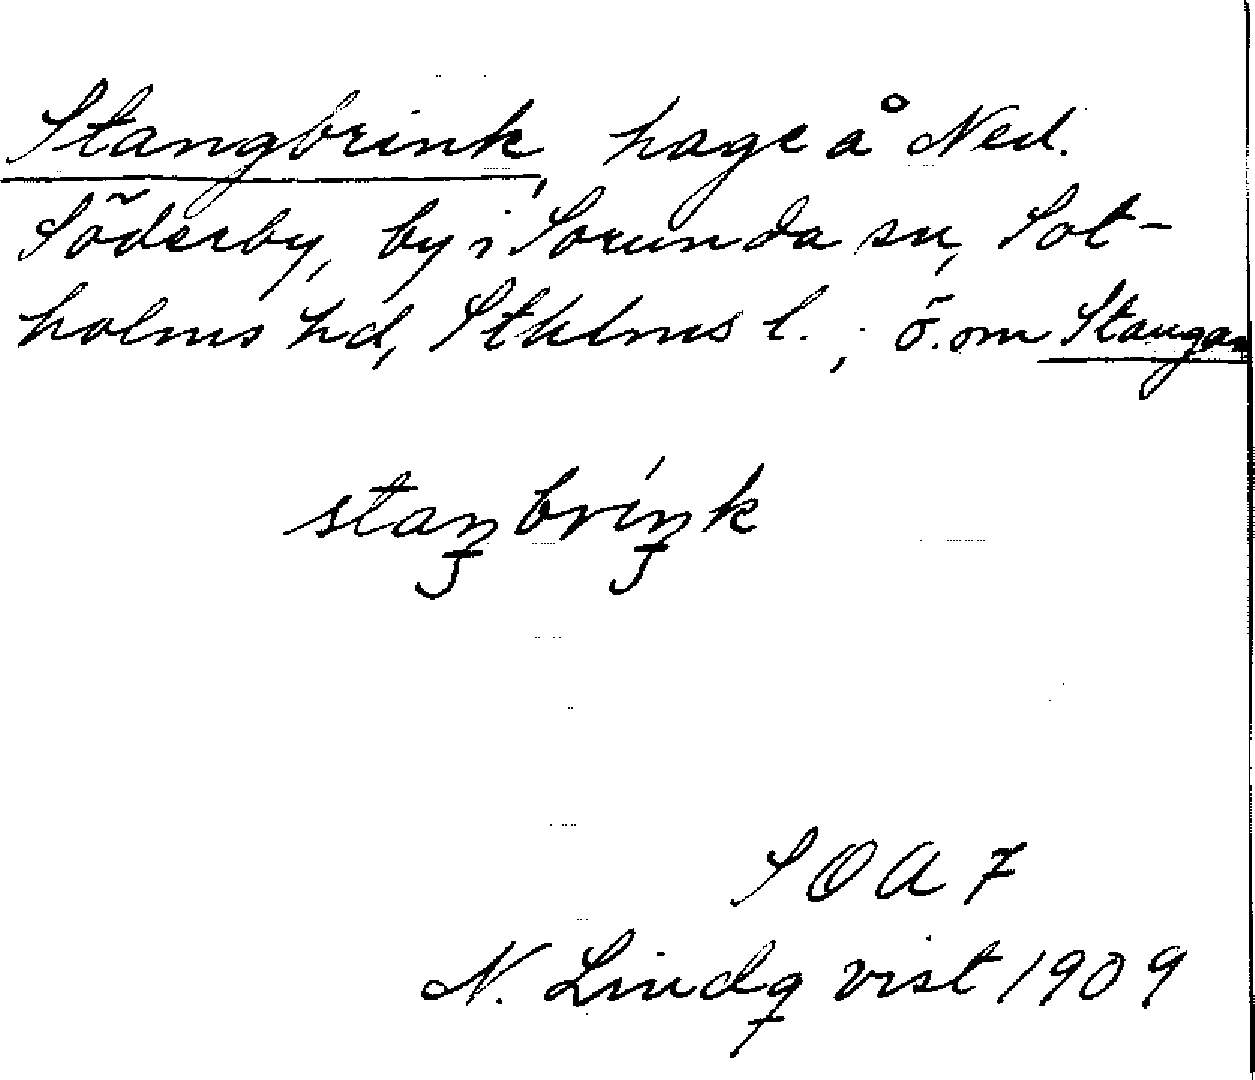 Stangbrink, hage å Ned.
Söderby, by i Sorunda sn, Sot-
holms hd, Sthlms l.; ö. om Stangan
staŋbriŋk
S O A 7
N. Lindqvist 1909